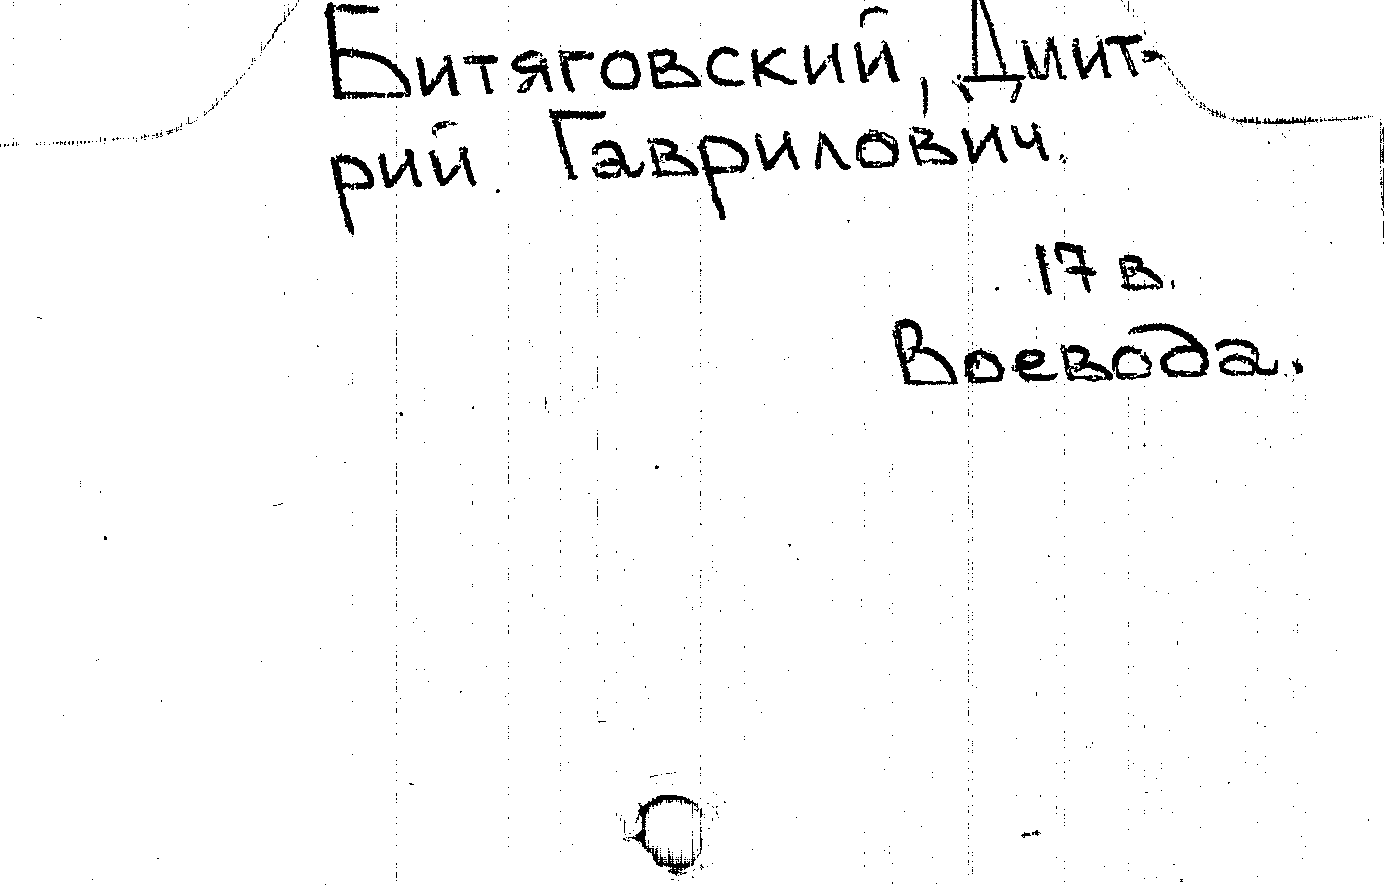 Битяговский, Дмит-
рий Гаврилович.
17 в.
Воевода.